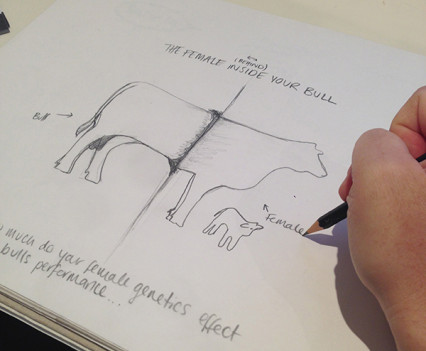 or
(BEHIND)
THE FEMALE INSIDE YOUR BULL
Bull
Female
much do your female genetics effect
bulls performance...